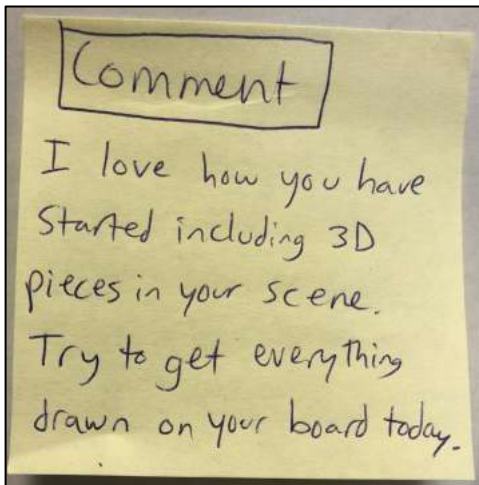 Comment
I love how you have
Started including 3D
pieces in your scene.
Try to get everything
drawn on your board today.